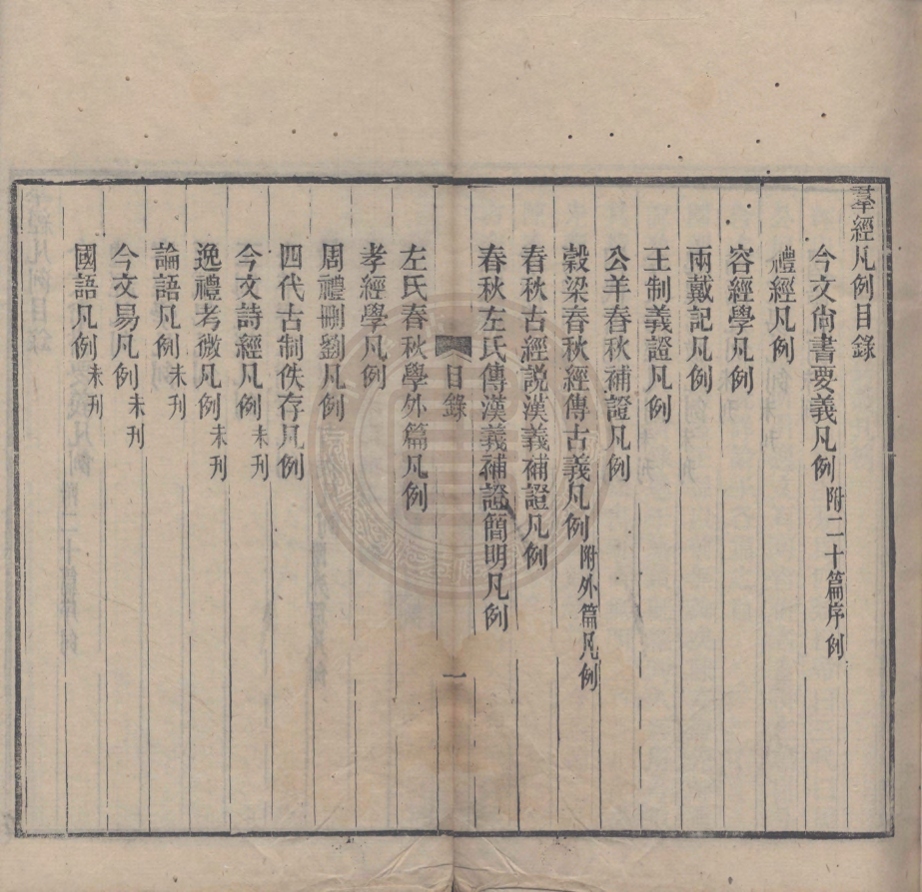 羣經凡例目錄
今文尙書要義凡例附二十篇序例
禮經凡例
容經學凡例
兩戴記凡例
王制義證凡例
公羊春秋補證凡例
穀梁春秋經傳古義凡例附外篇凡例
春秋古經說漢義補證凡例
春秋左氏傳漢義補證簡明凡例
目錄
一
左氏春秋學外篇凡例
孝經學凡例
周禮刪劉凡例
四代古制佚存凡例
今文詩經凡例未刊
逸禮考微凡例未刊
論語凡例未刊
今文易凡例未刊
國語凡例未刊